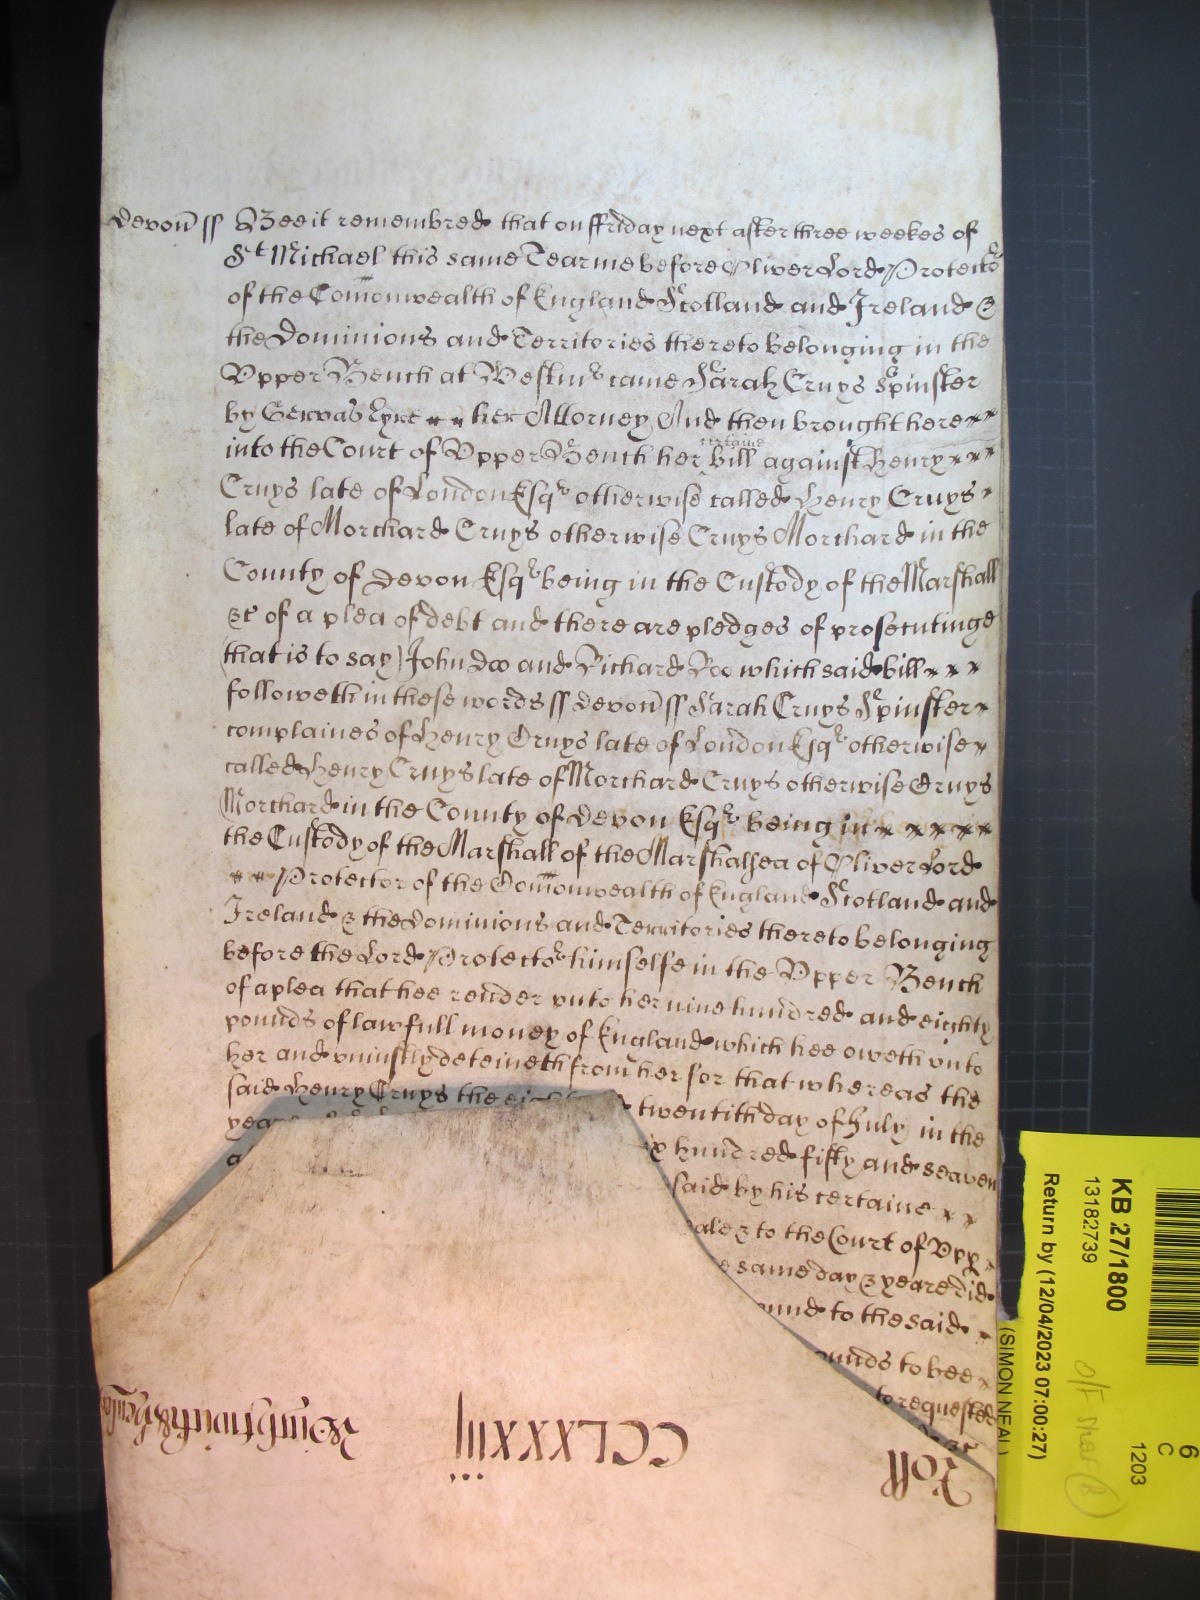 Devon ss Bee it remembred that on ffriday next after three weekes of
St Michael this same Tearme before Oliver Lord Protector
of the Comonwealth of England Scotland and Ireland &
the Dominions and Territories thereto belonging in the
Vpper Bench at Westmr came Sarah Cruys Spinster
by Gervas Lyne her Attorney And then brought here
into the Court of Vpper Bench her certaine bill against Henry
Cruys late of London Esqr otherwise called Henry Cruys
late of Morchard Cruys otherwise Cruys Morchard in the
County of Devon Esqr being in the Custody of the Marshall
&c of a plea of debt and there are pledges of prosecutinge
(that is to say) John Doo and Richard Roo which said bill
followeth in these words ss Devon ss Sarah Cruys Spinster
complaines of Henry Cruys late of London Esqr otherwise
called Henry Cruys late of Morchard Cruys otherwise Cruys
Morchard in the County of Devon Esqr being in
the Custody of the Marshall of the Marshalsea of Oliver Lord
Protector of the Comonwealth of England Scotland and
Ireland & the Dominions and Territories thereto belonging
before the Lord Protector himselfe in the Vpper Bench
of a plea that hee render vnto her nine hundred and eighty
pounds of lawfull money of England which hee oweth vnto
her and vniustly deteineth from her for that whereas the
said Henry Cruys the eight twentith day of July in the
yeare hundred fifty and seaven
said by his certaine
to the Court of Vpp
same day & yeare did
to the said
to bee
requested
Roll
CCLXXXIII
KB 27/1800
13182739
Return by (12/04/2023 07:00:27)
(SIMON NEAL)
6
C
1203